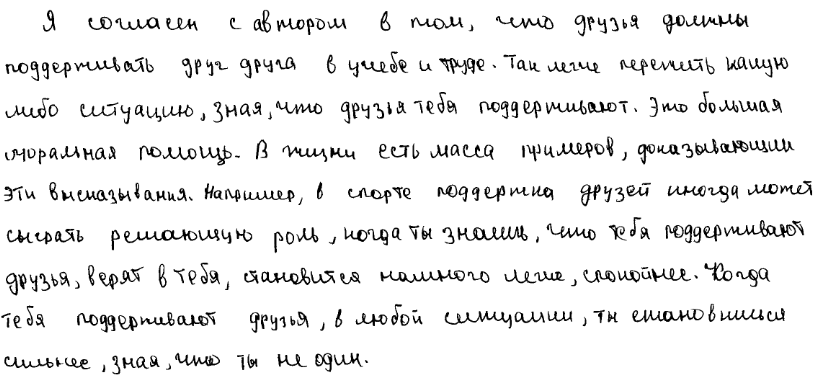 Я согласен с автором в том, что друзья должны
поддерживать друг друга в учебе и труде. Так легче пережить какую
либо ситуацию, зная, что друзья тебя поддерживают. Это большая
моральная помощь. В жизни есть масса примеров, доказывающии
эти высказывания. Например, в спорте поддержка друзей иногда может
сыграть решающую роль, когда ты знаешь, что тебя поддерживают
друзья, верят в тебя, становится намного легче, спокойнее. Когда
тебя поддерживают друзья, в любой ситуации, ты становишься
сильнее, зная, что ты не один.